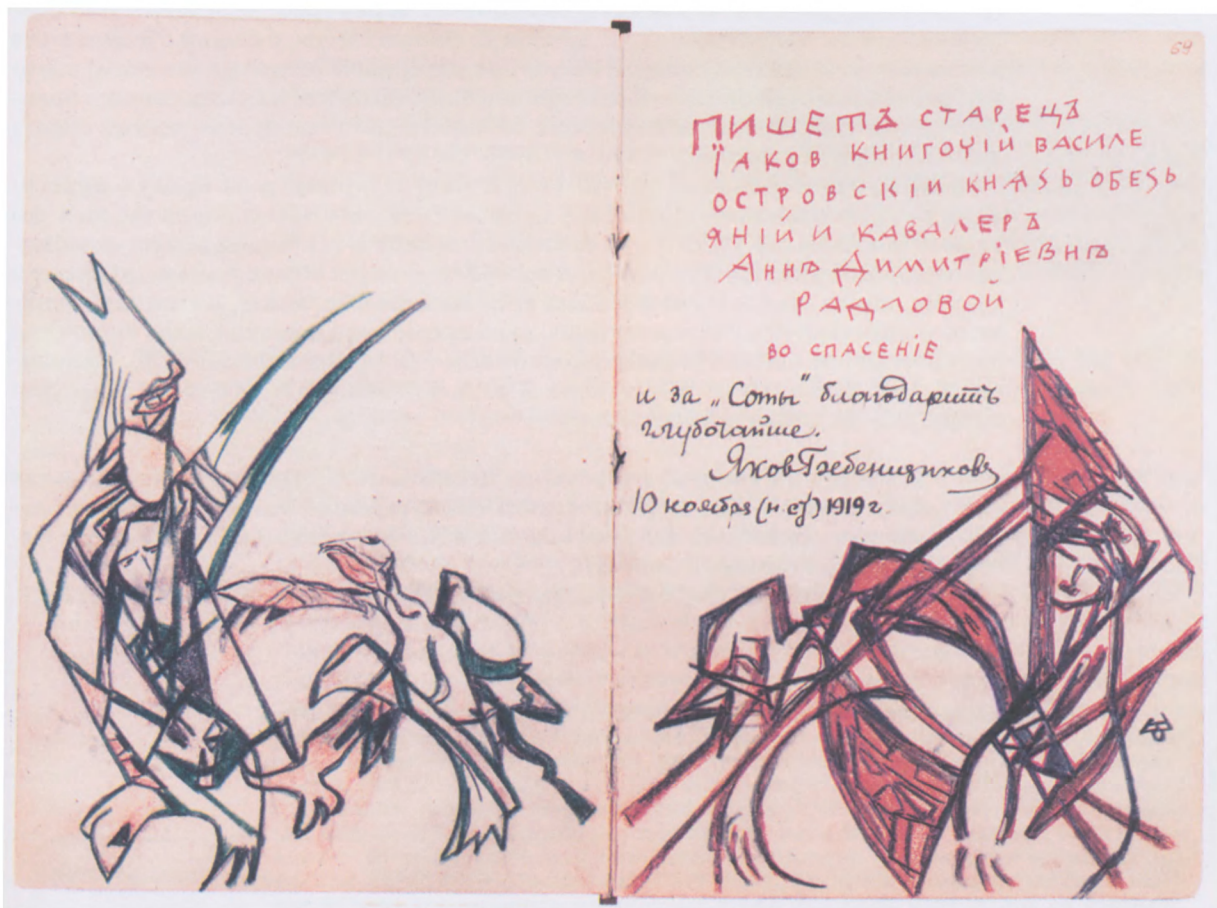 69
ПИШЕТЪ СТАРЕЦЪ
ІАКОВ КНИГОЧІЙ ВАСИЛЕ
ОСТРОВСКІИ КНѦЅЬ ОБЕЗЬ
ЯНІЙ И КАВАЛЕРЪ
АННѢ ДИМИТРІЕВНѢ
РАДЛОВОЙ
ВО СПАСЕНІЕ
и за „Соты" благодаритъ
глубочайше.
Яков Гребенщиковъ
10 ноября (н. с.) 1919 г.